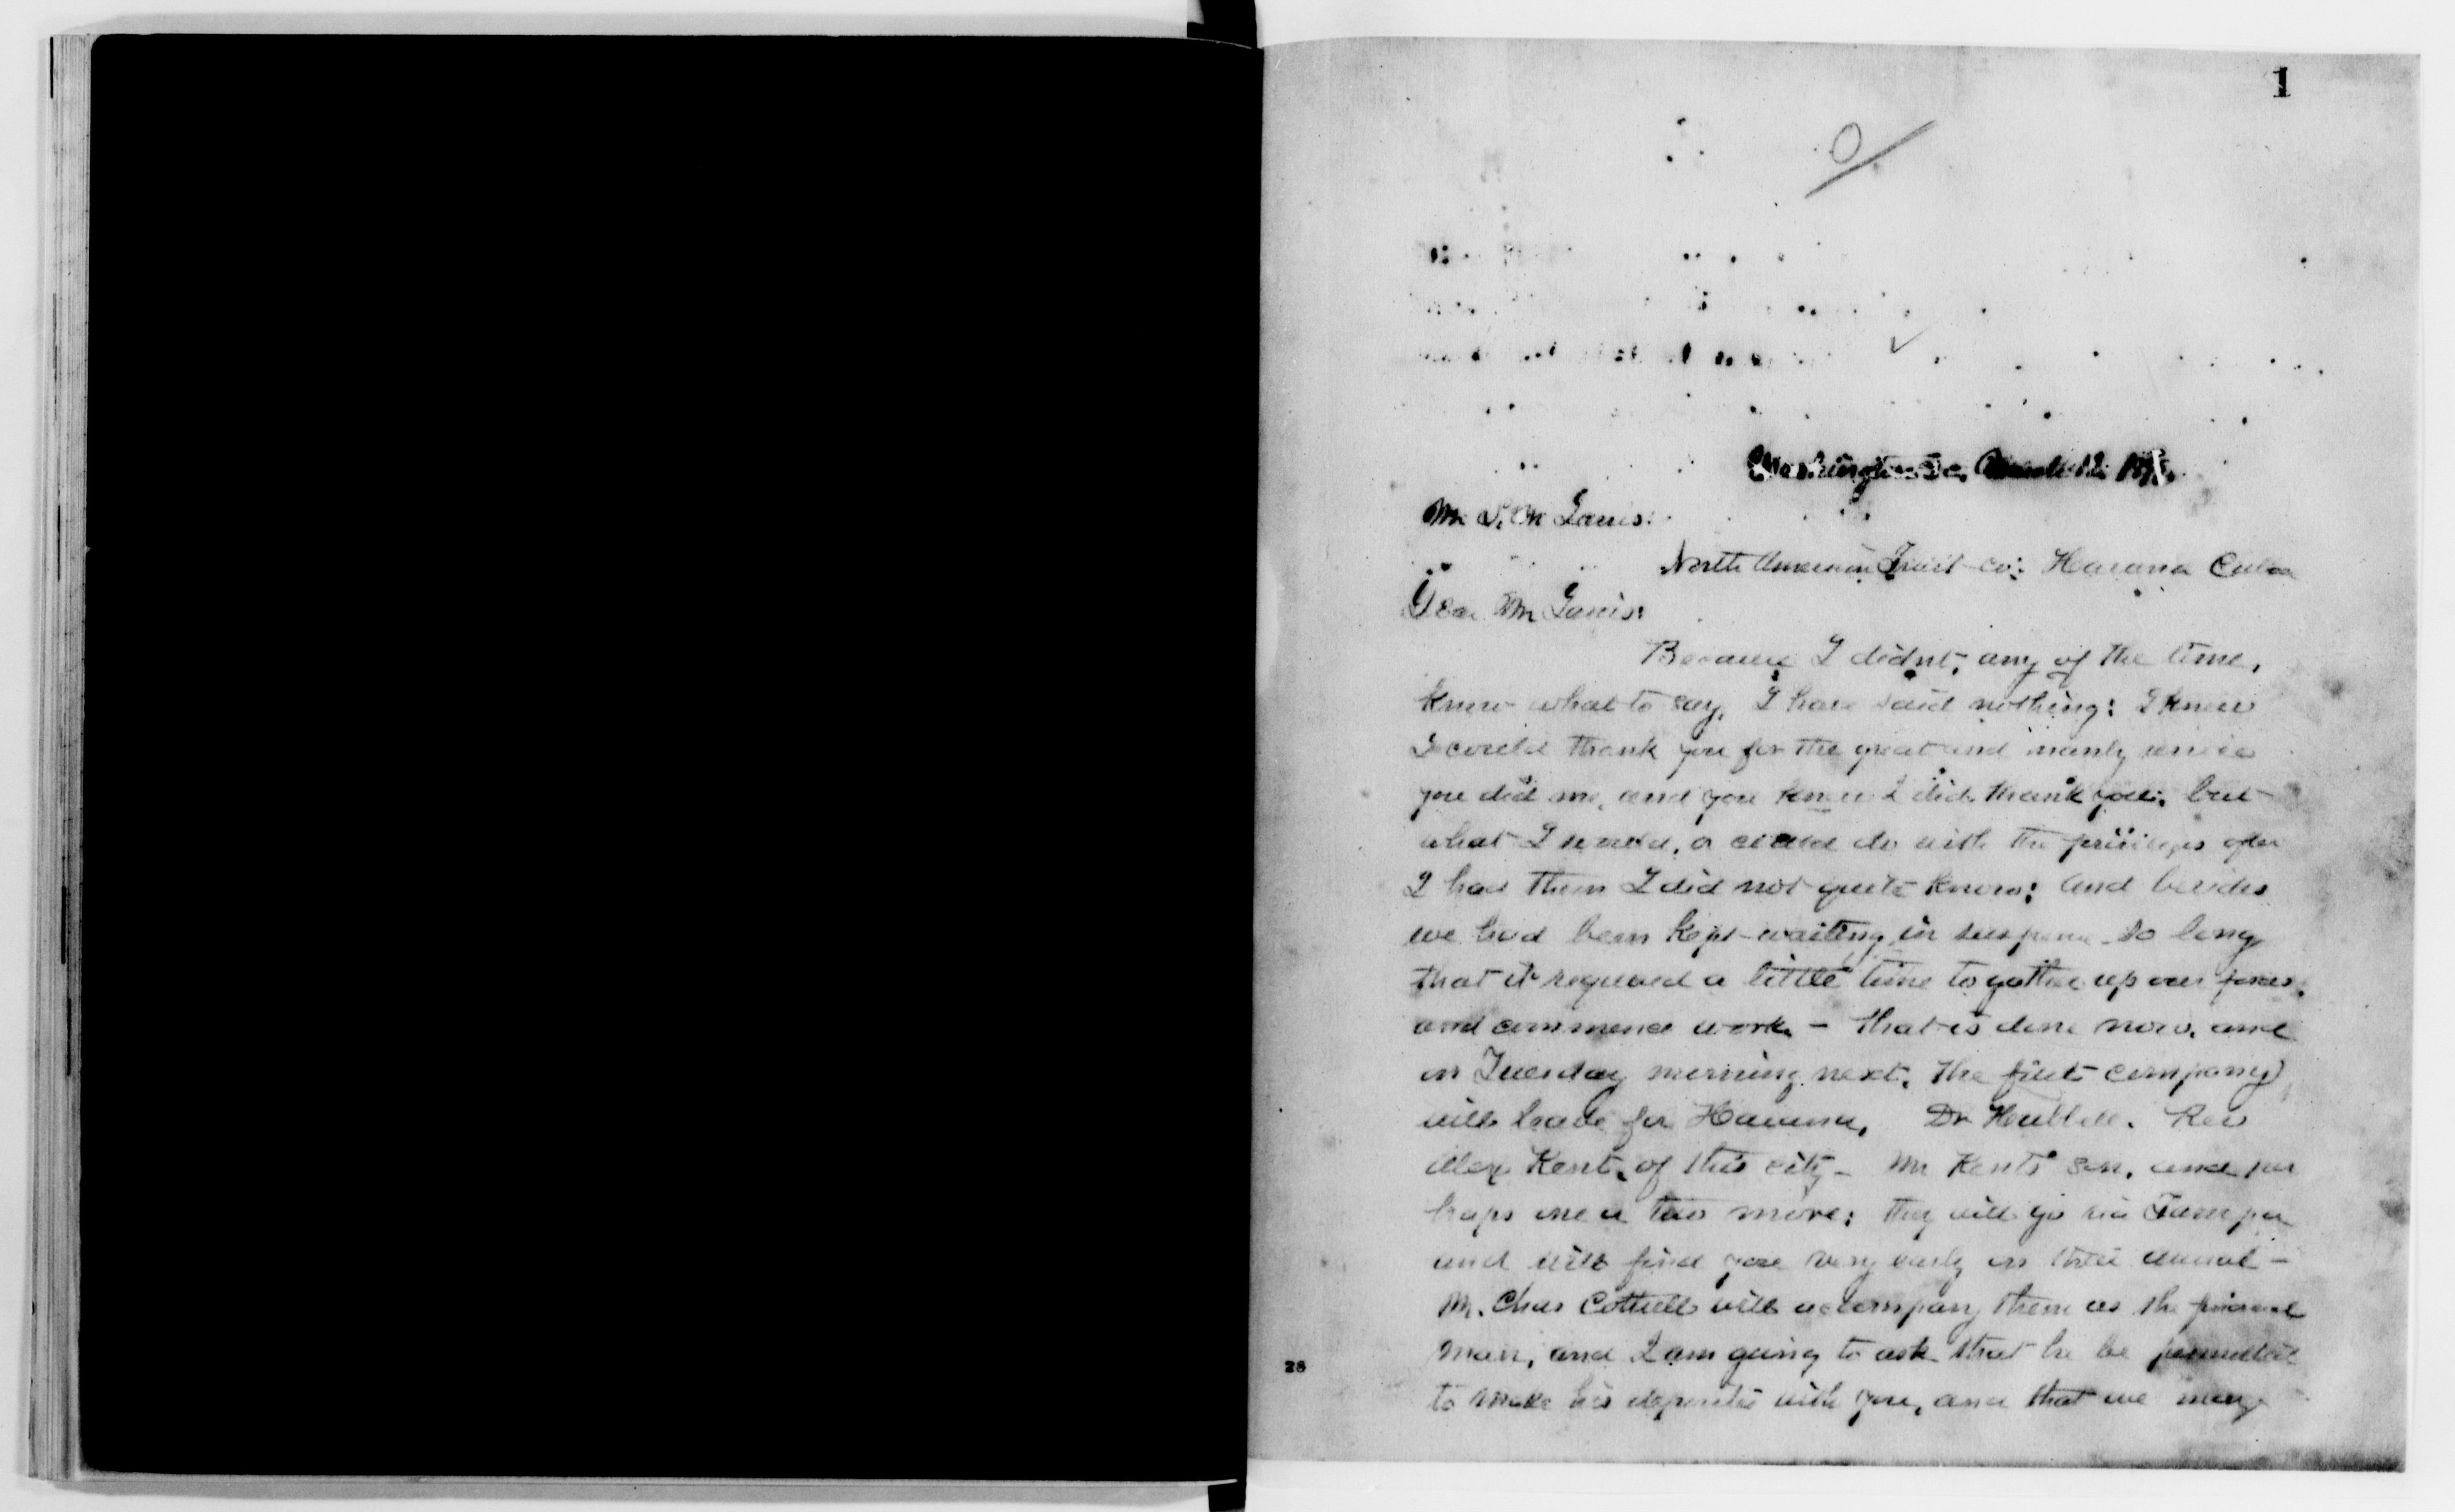 1
Washington D.C. March 12. 189
Mr S. M Jarvis:
North American Trust co: Havana Cuba
Dear Mr Jarvis:
Because I didnt, any of the time,
know what to say, I have said nothing: I knew
I could thank you for the great and manly service
you did me, and you knew I did thank you: but
what I would, or could do with the privileges after
I had them I did not quite know; and besides
we had been kept waiting in suspense so long
that it required a little time to gather up our forces
and commence work – that is done now, and
on Tuesday morning next, the first company
will leave for Havana, Dr Hubbell. Rev
Alex Kent, of this city – Mr Kents son, and per
haps one or two more: they will go via Tampa
and will find you very early on their arrival –
Mr. Chas Cottrell will accompany them as the financial
man, and I am going to ask that he be permitted
to make his deposits with you, and that we may
28